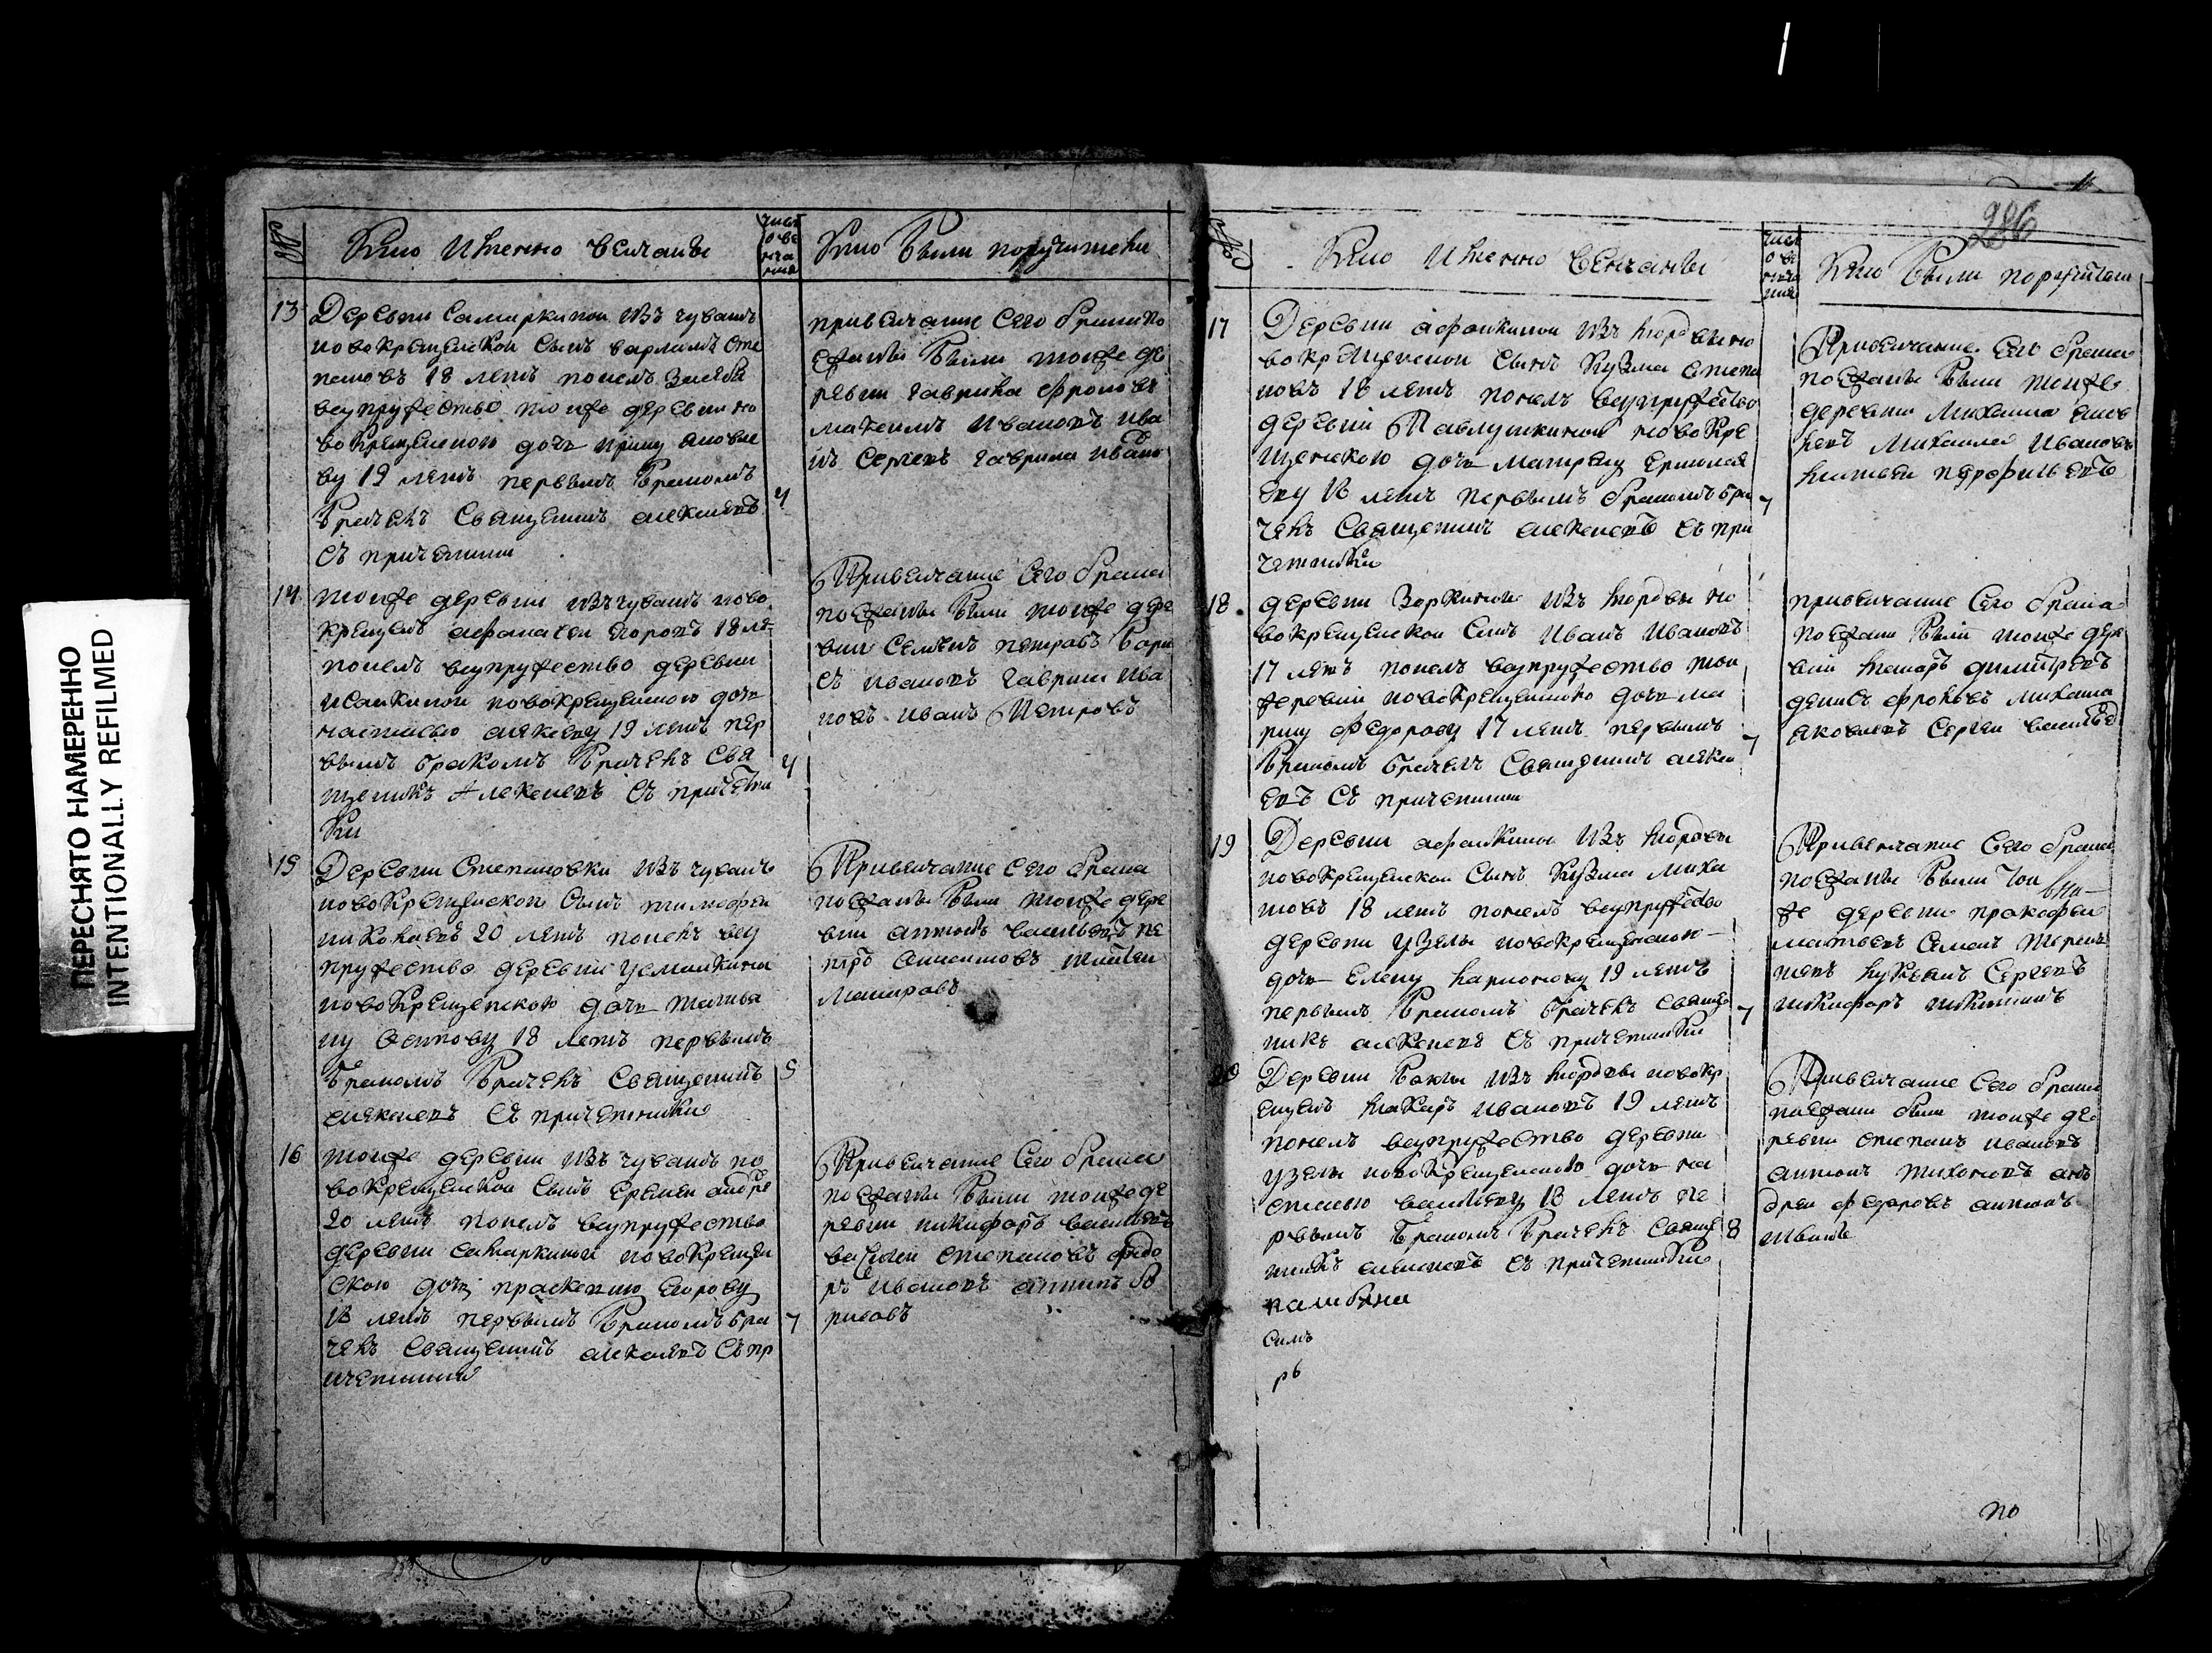 ПЕРЕСНЯТО НАМЕРЕННО
INTENTIONALLY REFILMED
286
№
Кто имянно венчаны
число венчания
Кто были поручители
13
Деревни Самаркиной изъ чувашъ
новокрещенской сынъ варламъ сте
пановъ 18 летъ понелъ за себя
всупружество тойже деревни но
вокрещенскою дочь ирину яковле
ву 19 летъ первымъ бракомъ
браченъ священникъ алексеевъ
съ причетники
4
привенчание сего брака по
езжаны были тойже де
ревни гаврила фроловъ
максимъ ивановъ ива
нъ сергеевъ гаврила ивано
14
тойже деревни изъ чувашъ ново
крещенъ афанасеи егоровъ 18 ле
понелъ всупружество деревни
исайкиной новокрещенскою дочь
настасью алексеву 19 летъ пер
вымъ бракомъ браченъ свя
щеникъ Алексеевъ съ причетни
ки
4
Привенчание сего брака
поезжаны были тойже дере
вни семенъ петровъ бори
съ ивановъ гаврила ива
новъ иванъ Петровъ
15
Деревни Степановки изъ чувашъ
новокрещенской сынъ тимофеи
николаевъ 20 летъ понелъ всу
пружество деревни усманкина
новокрещенскою дочь татья
ну осипову 18 летъ первымъ
бракомъ браченъ священникъ
алексеевъ съ причетники
5
Привенчание сего брака
поезжаны были тойже дере
вни антонъ васильевъ пе
тръ анисимовъ
16
тойже деревни изъ чувашъ но
вокрещенской сынъ еремеи андре
20 летъ понелъ всупружество
деревни самаркиной новокрещен
скою дочь прасковию егорову
18 летъ первымъ бракомъ бра
ченъ священникъ алексеевъ съ пр
ичетники
7
Привенчание сего брака
поезжаны были тойже де
ревни никифоръ васильевъ
василеи степановъ федо
ръ ивановъ антипъ бо
рисовъ
№
Кто имянно венчаны
число венчания
Кто были поручители
17
Деревни афонкиной изъ мордвы но
вокрещенской сынъ кузма степа
новъ 18 летъ понелъ всупружество
деревни Павлушкиной новокре
щенскою дочь матрену ермола
еву 18 летъ первымъ бракомъ бра
ченъ священникъ алексеевъ съ при
четники
7
Привенчание сего брака
поезжаны были тойже
деревни михаила
михаила ивановъ
матвеи перфильевъ
18
деревни Зоркиной изъ мордвы но
вокрещенской сынъ иванъ ивановъ
17 летъ понелъ всупружество той
же деревни новокрещенскою дочь ма
рину федорову 17 летъ первымъ
бракомъ браченъ священникъ алексе
евъ съ причетники
7
привенчание сего брака
поезжаны были тойже дере
вни макаръ димитревъ
денисъ фроловъ михаила
яковлевъ сергеи васильев
19
Деревни афонкины изъ мордвы
новокрещенской сынъ кузма миха
иловъ 18 летъ понелъ всупружество
деревни узелы новокрещенскою
дочь елену ларионову 19 летъ
первымъ бракомъ браченъ священ
никъ алексеевъ съ причетники
7
Привенчание сего брака
поезжаны были той
же деревни прокофеи
матвеевъ семенъ терен
тевъ лукиянъ сергеевъ
никифоръ никитинъ
20
Деревни баклы изъ мордвы новокр
ещенъ макаръ ивановъ 19 летъ
понелъ всупружество деревни
узелы новокрещенскою дочь на
стасью васильеву 18 летъ пе
рвымъ бракомъ браченъ священ
никъ алексеевъ съ причетники
8
Привенчание сего брака
поезжаны были тойже де
ревни степанъ ивановъ
антонъ тихоновъ анъ
дреи федоровъ антонъ
ивановъ
но